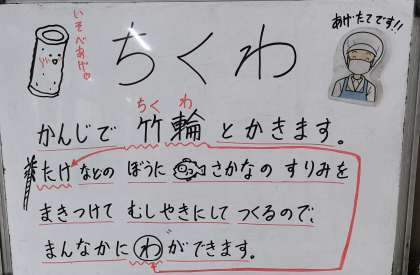 いそべあげ
ちくわ
あげたてです!!
ちく わ
かんじで 竹輪 とかきます。
たけ などの ぼうに さかなの すりみを
まきつけて むしやきにして つくるので、
まんなかに わ ができます。